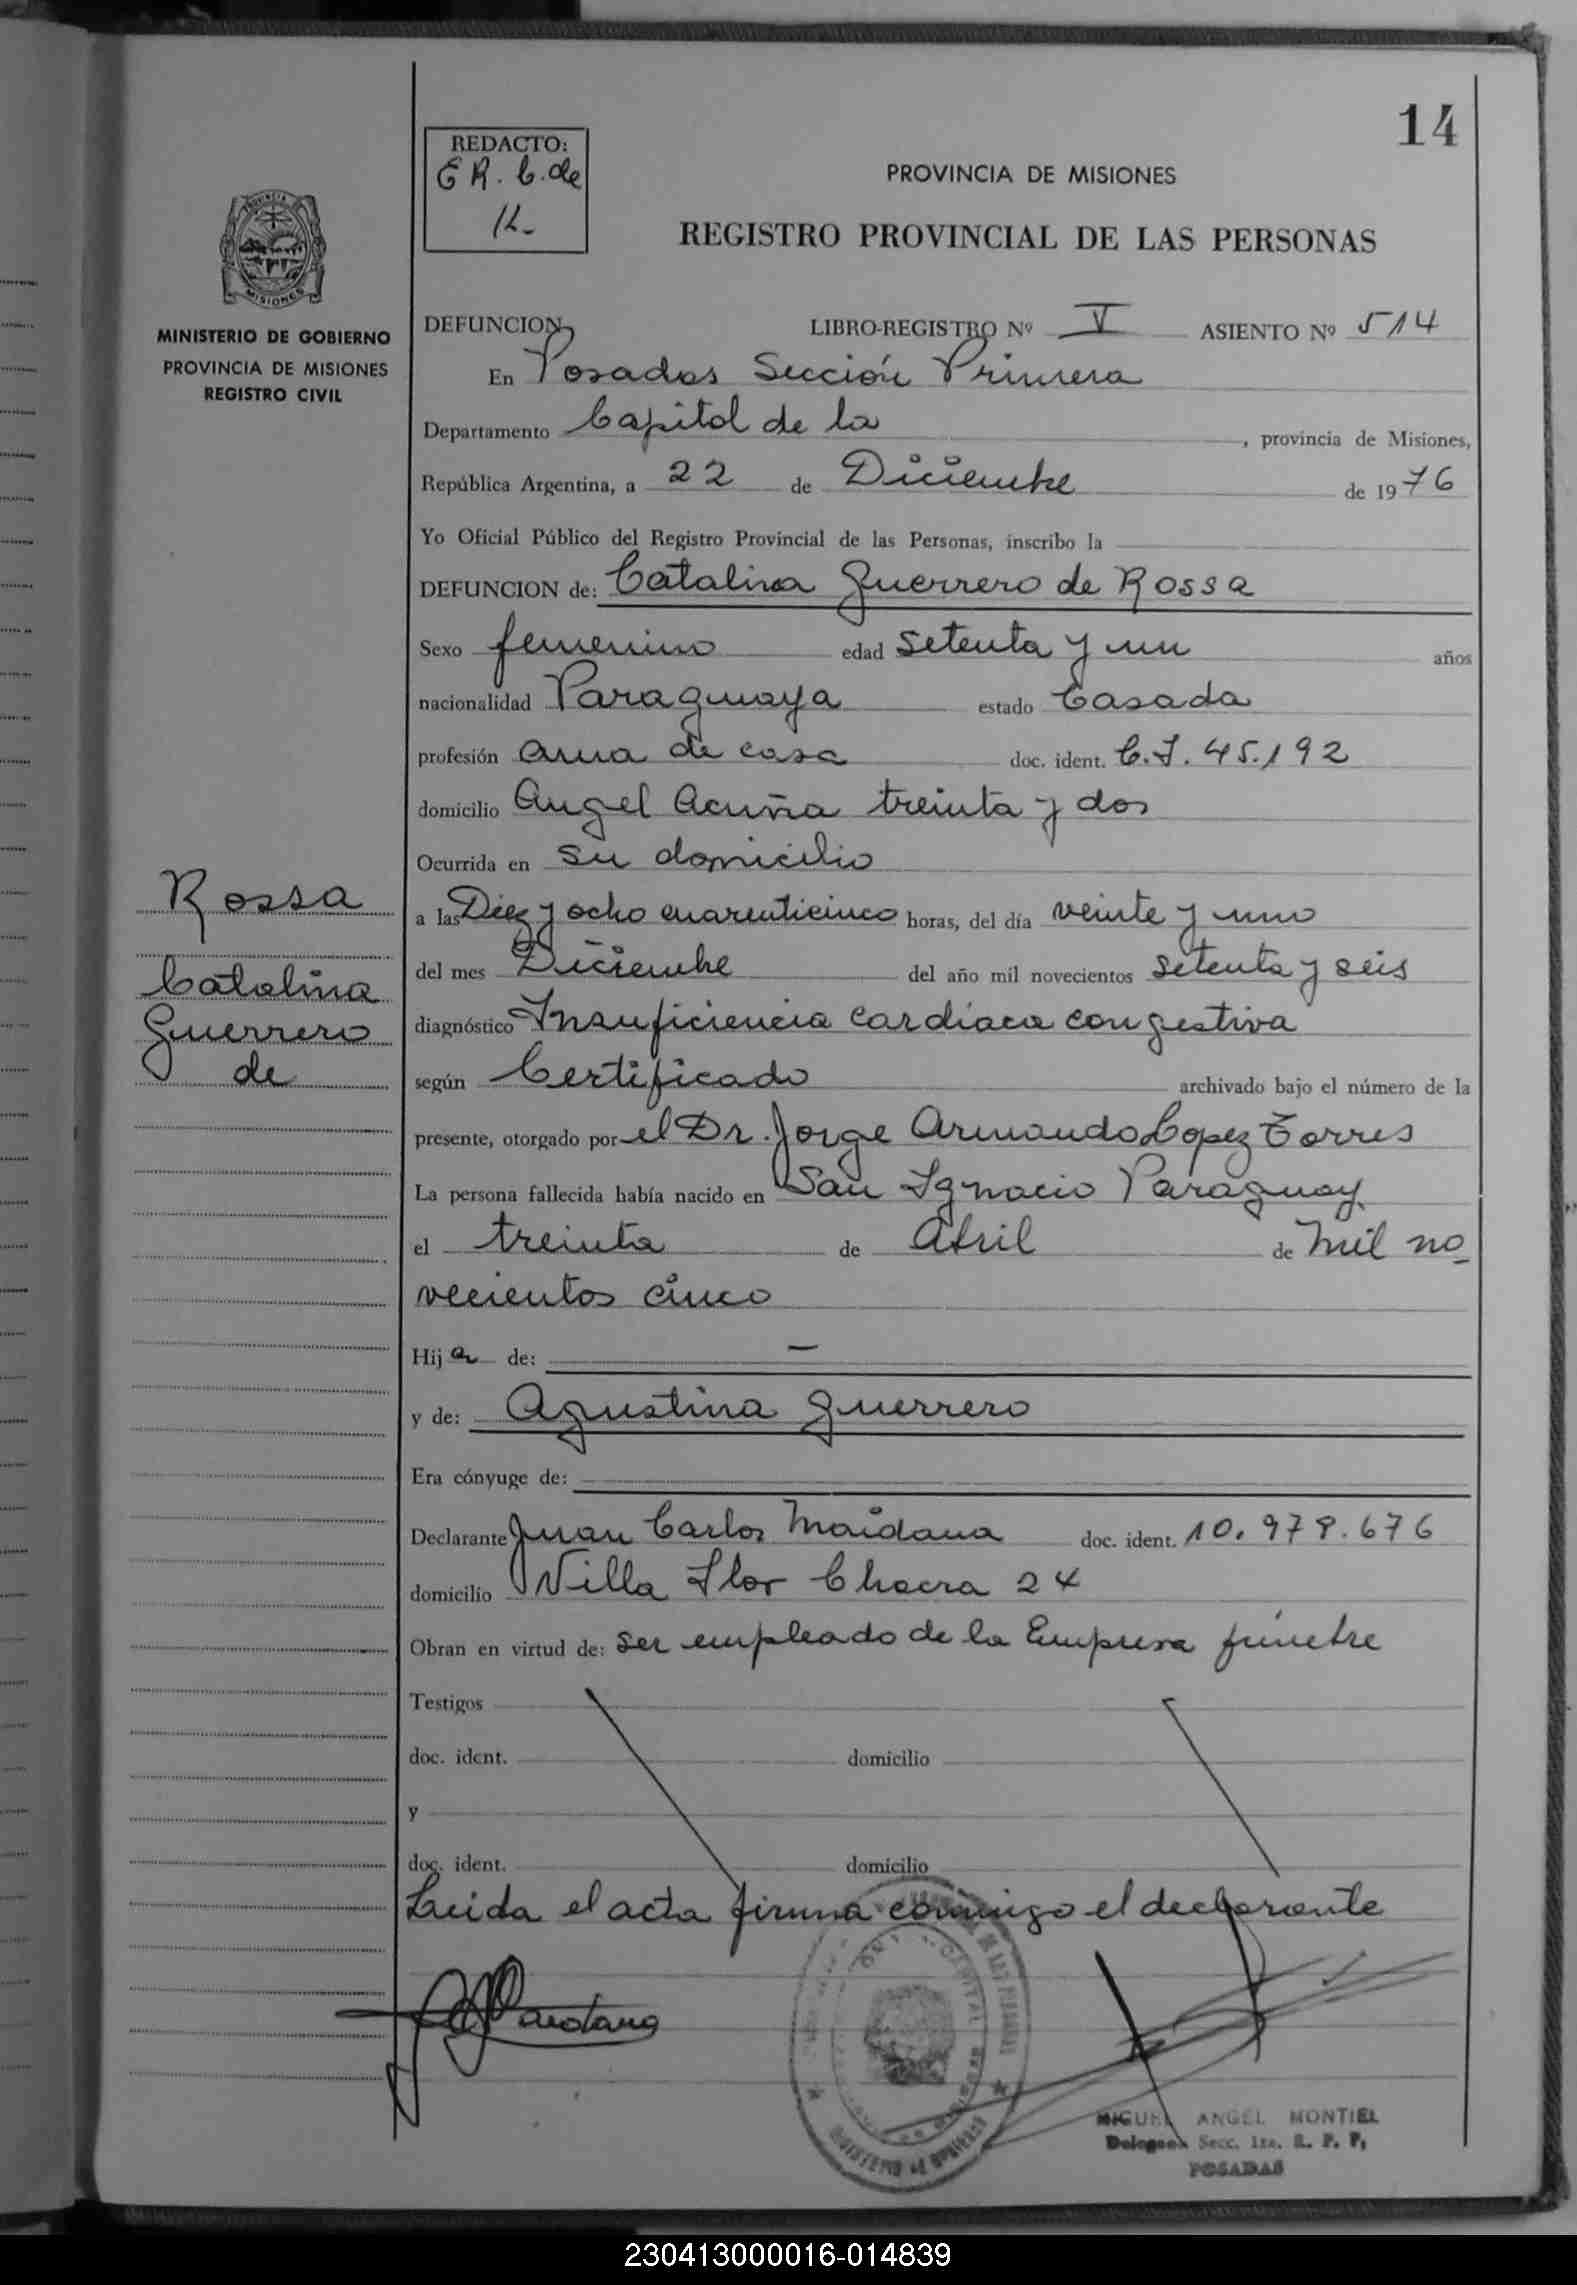 14
REDACTO:
E R. C. de
K.
PROVINCIA DE MISIONES
REGISTRO PROVINCIAL DE LAS PERSONAS
MISIONES
MINISTERIO DE GOBIERNO
PROVINCIA DE MISIONES
REGISTRO CIVIL
DEFUNCION LIBRO-REGISTRO Nº V ASIENTO Nº 514
En Posadas Sección Primera
Departamento Capital de la , provincia de Misiones,
República Argentina, a 22 de Diciembre de 1976
Yo Oficial Público del Registro Provincial de las Personas, inscribo la
DEFUNCION de: Catalina Guerrero de Rossa
Sexo femenino edad setenta y un años
nacionalidad Paraguaya estado Casada
profesión ama de casa doc. ident. C.I. 45.192
domicilio Angel Acuña treinta y dos
Ocurrida en su domicilio
a las Diez y ocho cuarenticinco horas, del día veinte y uno
del mes Diciembre del año mil novecientos setenta y seis
diagnóstico Insuficiencia cardíaca congestiva
según Certificado archivado bajo el número de la
presente, otorgado por el Dr. Jorge Armando Lopez Torres
La persona fallecida había nacido en San Ignacio Paraguay
el treinta de Abril de mil no_
vecientos cinco
Hija de: —
y de: Agustina Guerrero
Era cónyuge de:
Declarante Juan Carlos Maidana doc. ident. 10.979.676
domicilio Villa Flor Chacra 24
Obran en virtud de: ser empleado de la Empresa fúnebre
Testigos
doc. ident. domicilio
y
doc. ident. domicilio
Leida el acta firma conmigo el declarante
Rossa
Catalina
Guerrero
de
MIGUEL ANGEL MONTIEL
Delegado Secc. 1ra. R. P. P.
POSADAS
230413000016-014839